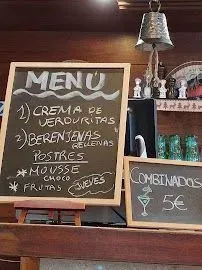 MENÚ
1) CREMA DE
VERDURITAS
2) BERENJENAS
RELLENAS
POSTRES
* MOUSSE
CHOCO
* FRUTAS
JUEVES
COMBINADOS
5€